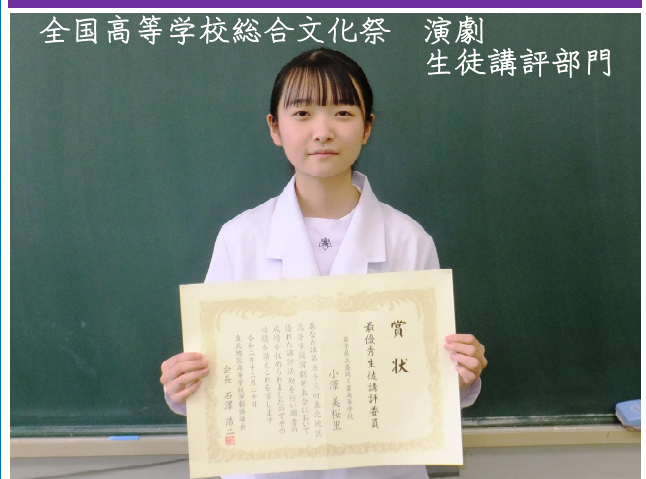 全国高等学校総合文化祭 演劇
生徒講評部門
賞状
最優秀生徒講評委員
岩手県立盛岡工業高等学校
小澤 美桜里
あなたは第五十三回東北地区
高等学校演劇発表会において
優れた講評活動を行い頭書の
成績を収められましたのでその
功績を讃えこれを賞します
令和二年十二月二十日
東北地区高等学校演劇協議会
会長 石澤 浩二